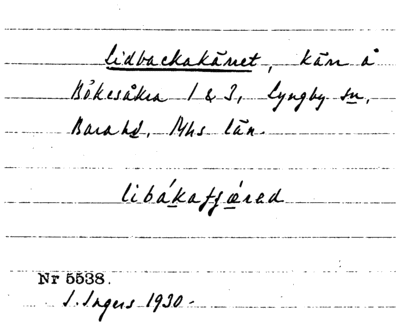 Lidbackakärret, kärr å
Bökesåkra 1 & 3, Lyngby sn,
Bara hd, Mhs län.
libákaſǽred
Nr 5538.
S. Ingers 1930.